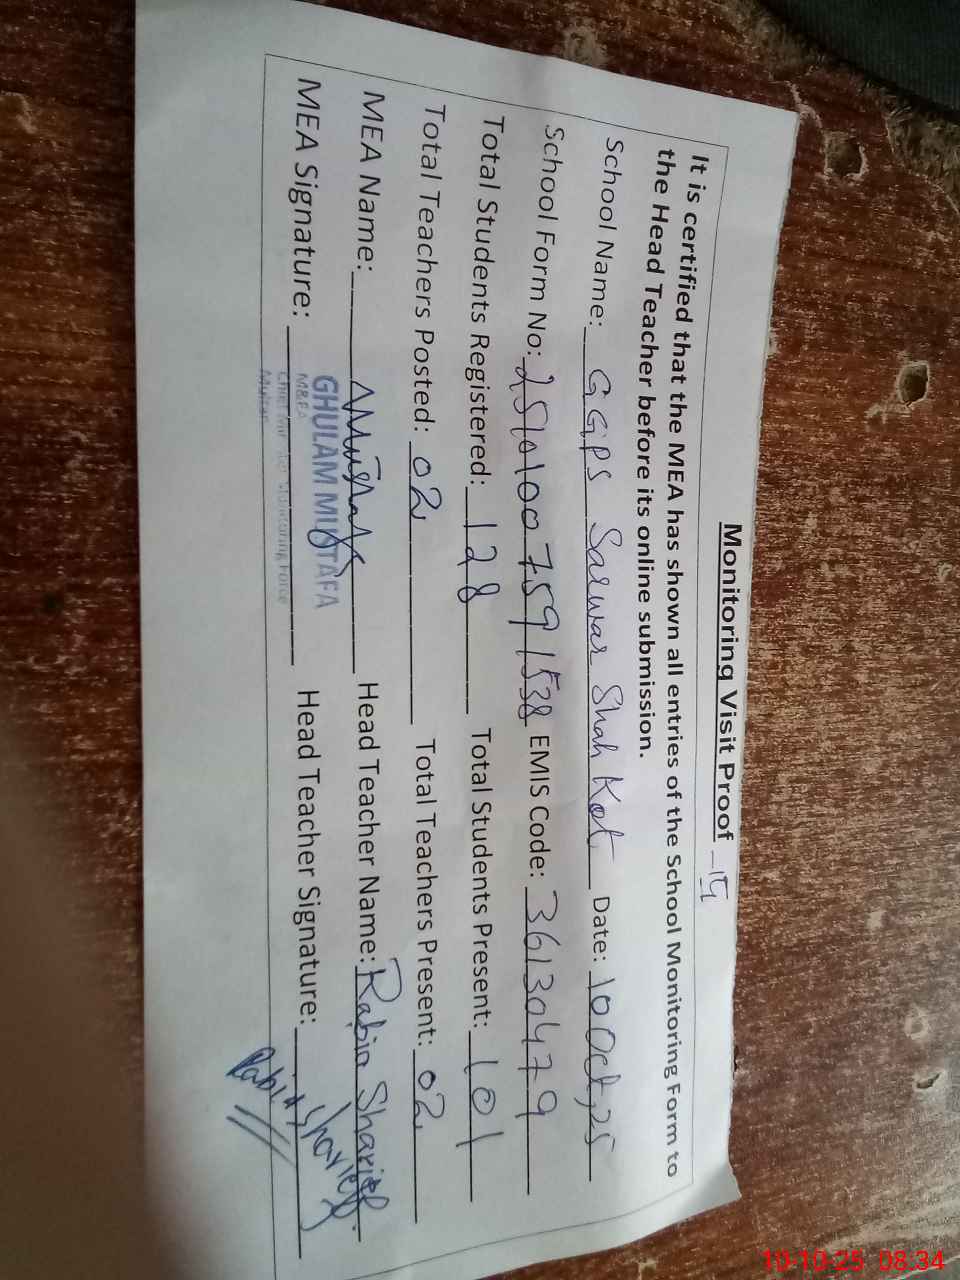 Monitoring Visit Proof 19
It is certified that the MEA has shown all entries of the School Monitoring Form to
the Head Teacher before its online submission.
School Name: GGPS Sarwar Shah Kot Date: 10 Oct, 25
School Form No: 25101007591538 EMIS Code: 36130479
Total Students Registered: 128 Total Students Present: 101
Total Teachers Posted: 02 Total Teachers Present: 02
MEA Name: Head Teacher Name: Rabia Sharieff
MEA Signature: Head Teacher Signature: Rabia Sharieff
GHULAM MUSTAFA
Monitoring Force
10-10-25 08:34